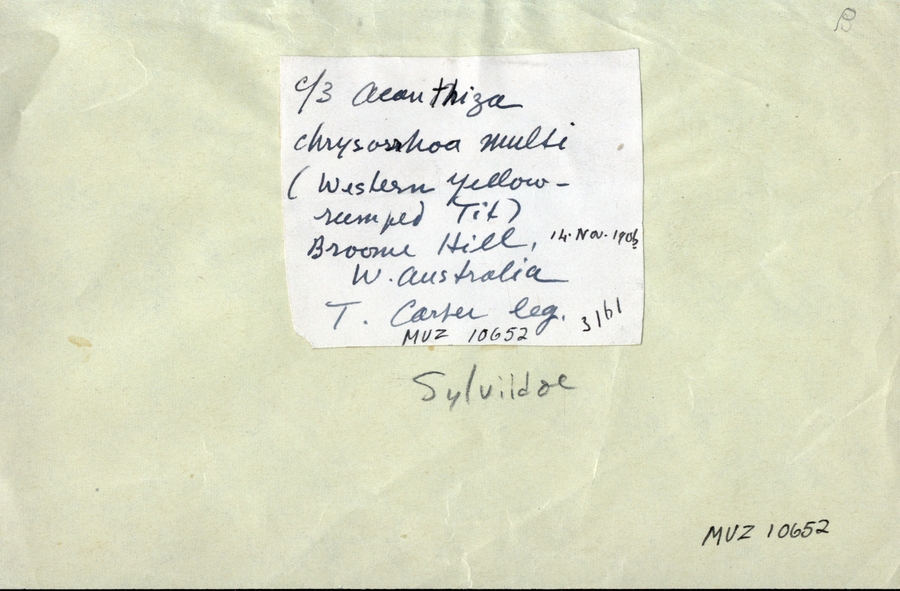 c/3 Acanthiza
chrysorrhoa multi
(Western Yellow-
rumped Tit)
Broome Hill, 14. Nov. 190
W. Australia
T. Carter leg. 3/61
MUZ 10652
Sylviidae
MUZ 10652